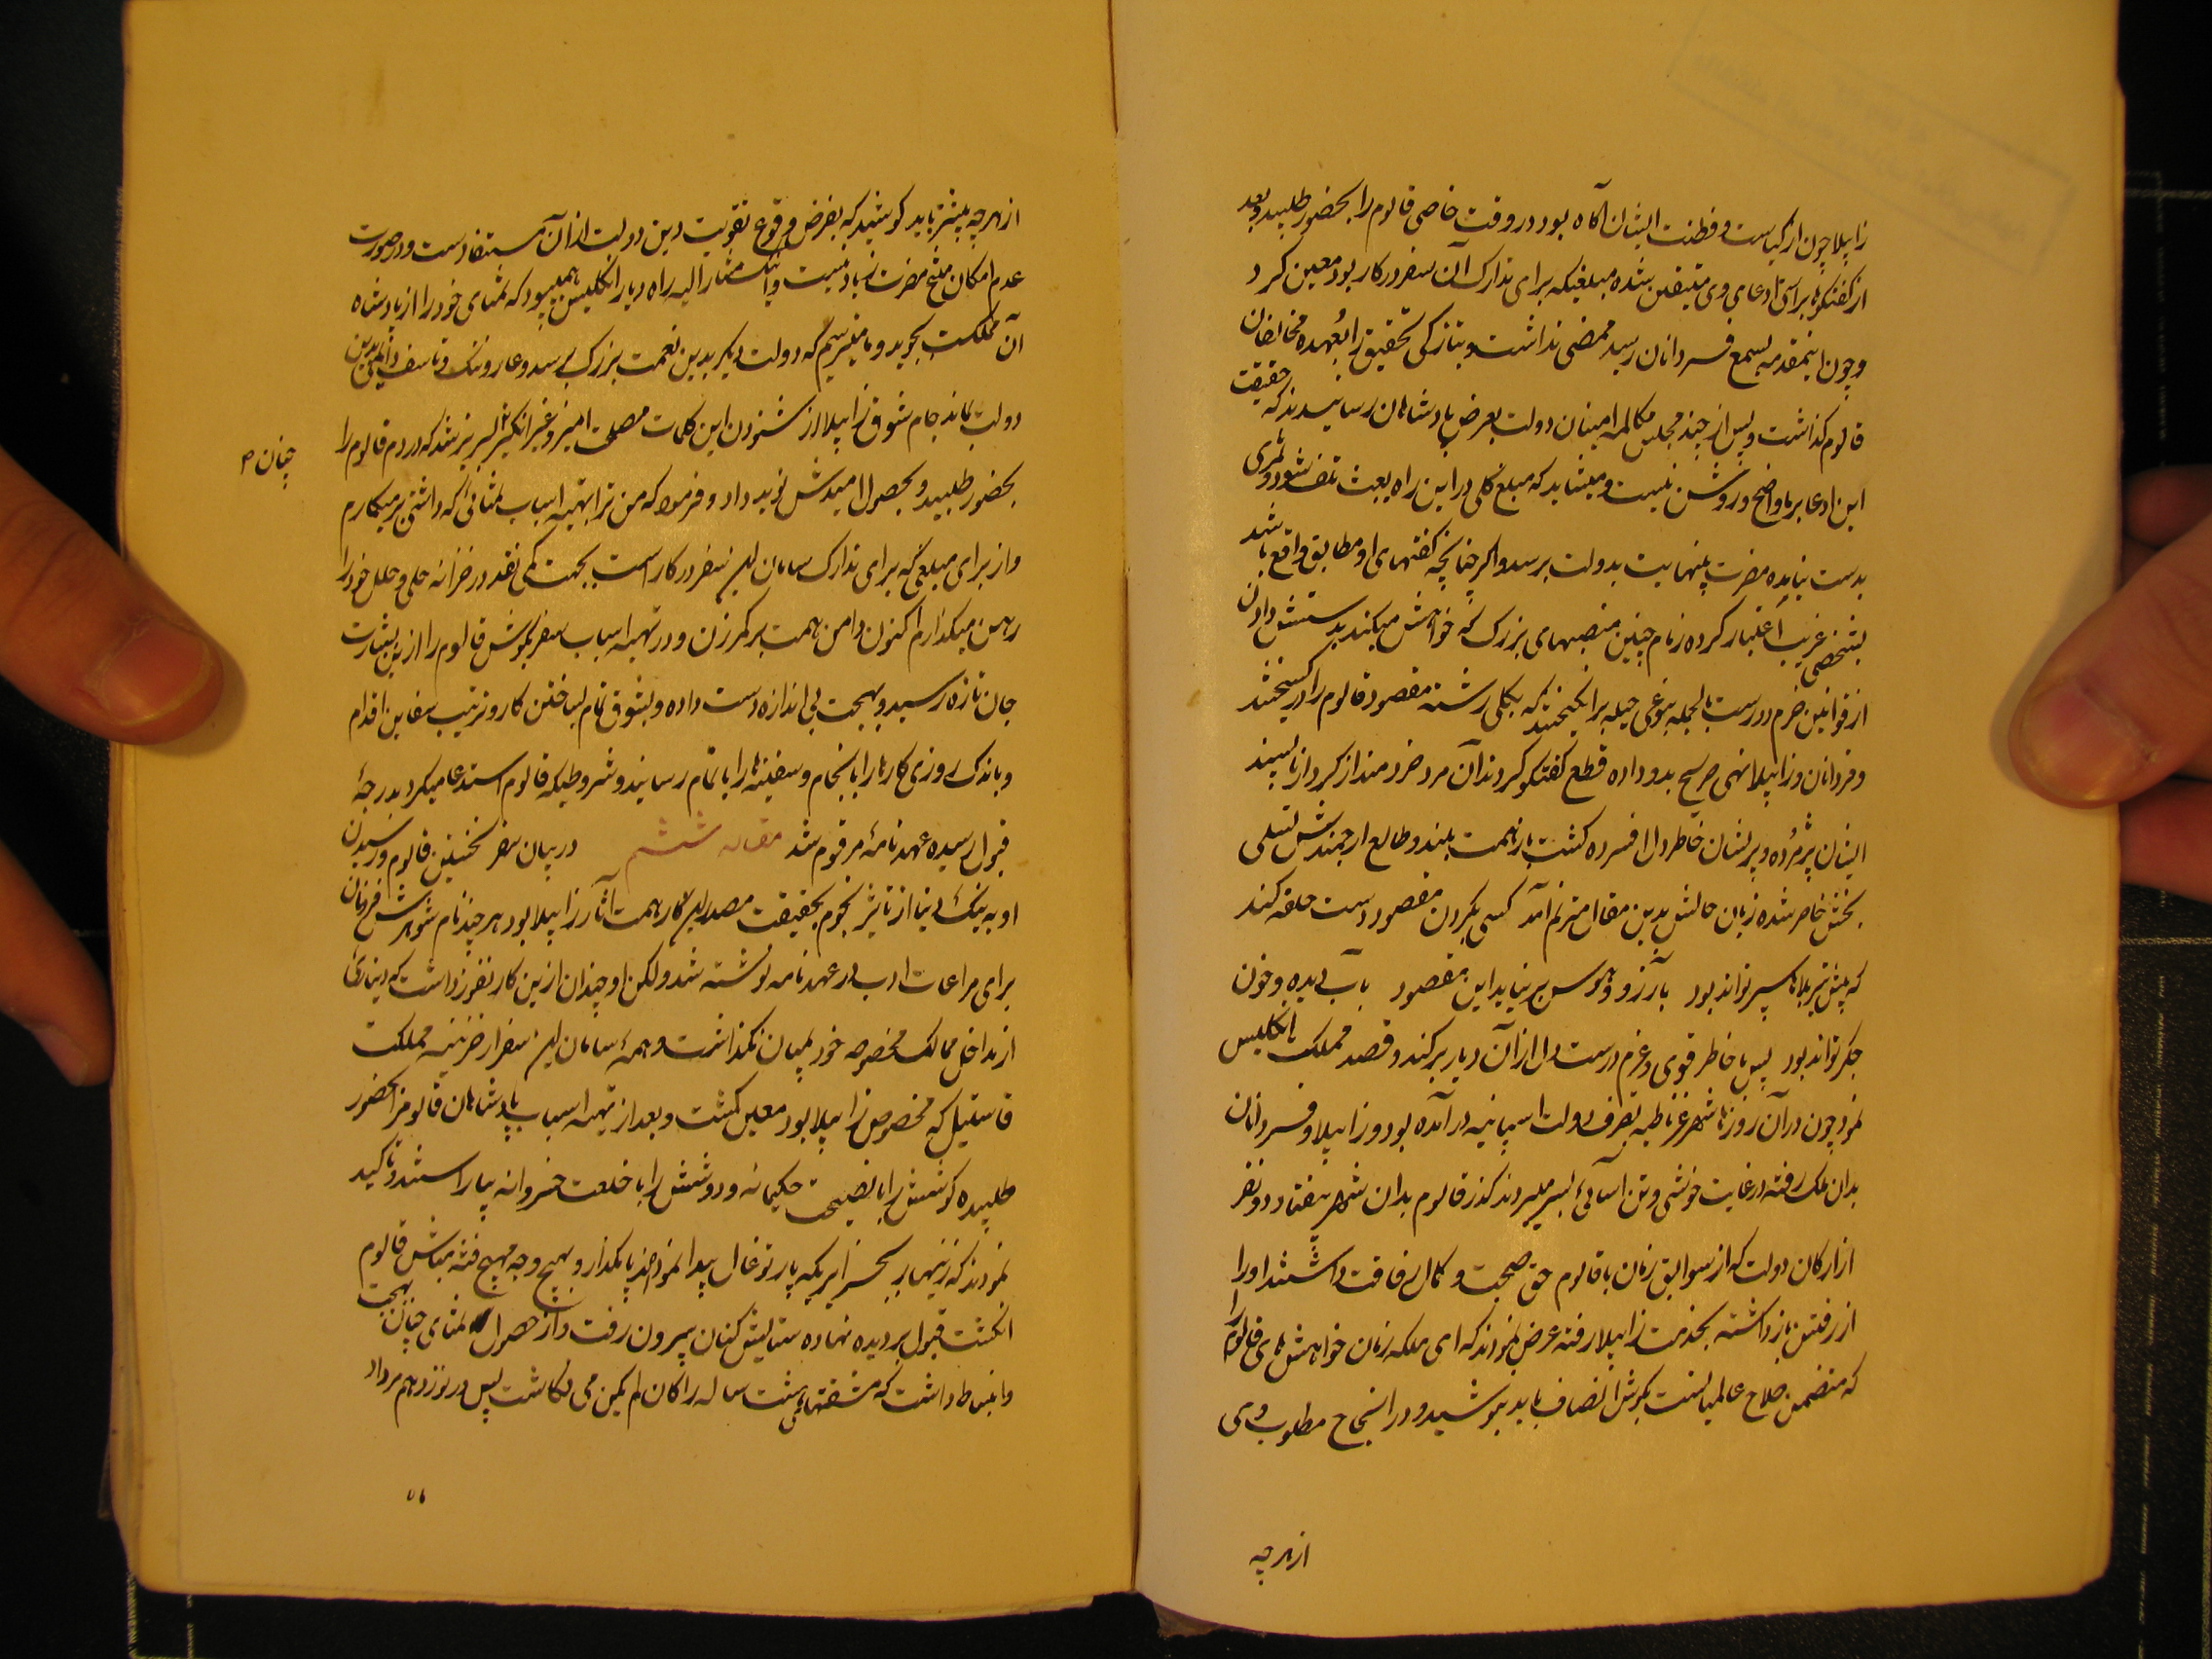 زاپیلا چون از کیاست و فطنت ایشان آگاه بود در وقت خاصی قالوم را بحضور طلبید و بعد
از گفتگوها براستی ادعای وی متیقن شده مبلغیکه برای تدارک آن سفر در کار بود معین کرد
و چون اینمقدمه بسمع فردانان رسید ممضی نداشت و بتازگی تحقیق را بعهده مخالفان
قالوم گذاشت و پس از چند مجلس مکالمه امینان دولت بعرض پادشاهان رسانیدند که حقیقت
این ادعا بر ما واضح و روشن نیست و میشاید که مبلغ کلی در این راه بعبث تلف شود و ثمری
بدست نیایده مضرت بینهایت بدولت برسد و اگر چنانچه گفتهای او مطابق واقع باشد
بشخصی غریب اعتبار کرده زمام چنین منصبهای بزرگ که خواهش میکند بدستش دادن
از قوانین حزم دورست بالجمله بنوعی حیله برانگیختند که بکلی رشته مقصود قالوم را درگسیختند
و فردانان و زاپیلا نهی صریح بدو داده قطع گفتگو کردند آن مرد خردمند از کردار ناپسند
ایشان پژمرده و پریشان خاطر و دل افسرده گشت باز همت بلند و طالع ارجمندش تسلی
بخش خاطر شده زبان حالش بدین مقال مترنم آمد کسی بگردن مقصود دست حلقه کند
که پیش تیر بلاها سپر تواند بود بآرزو و هوس بر نیاید این مقصود بآب دیده و خون
جگر تواند بود پس با خاطر قوی و عزم درست دل از آن دیار برکند و قصد مملکت انگلیس
نمود چون در آن روزها شهر غرناطه بتصرف دولت اسپانیه در آمده بود و زاپیلا و فردانان
بدان ملک رفته در غایت خوشی و تن آسائی بسر میبردند گذر قالوم بدان شهر بیفتاد دو نفر
از ارکان دولت که از سوابق زمان با قالوم حق صحبت و کمال رفاقت داشتند او را
از رفتن باز داشته بخدمت زاپیلا رفته عرض نمودند که ای ملکه زمان خواهش های قالوم را
که متضمن صلاح عالمیانست بگوش انصاف باید نیوشید و در انجاح مطلوب وی
از هر چه
از هر چه بیشتر باید کوشید که بفرض وقوع تقویت دین و دولت از آن مستفادست و در صورت
عدم امکان منتج مضرت زیاد نیست و اینک مشار الیه راه دیار انگلیس میپیمود که تمنای خود را از پادشاه
آن مملکت بجوید و ما میترسیم که دولت دیگر بدین نعمت بزرگ برسد و عار و ننگ و تاسف دایمی بدین
دولت بماند جام شوق زاپیلا از شنودن این کلمات مصلحت آمیز و غیرت انگیز لبریز شد که در دم قالوم را
بحضور طلبید و بحصول امیدش نوید داد و فرمود که من ترا بتهیه اسباب تمنائی که داشتی بر میگمارم
چنان ۳
و از برای مبلغی که برای تدارک سامان این سفر در کار است بجهت کمی نقد در خزانه حلی و حلل خود را
رهن میگذارم اکنون دامن همت بر کمر زن و در تهیه اسباب سفر بکوش قالوم را از این بشارت
جان تازه رسید و بهجت بی اندازه دست داده و بشوق تمام بساختن کار و ترتیب سفاین اقدام
و باندک روزی کارها را بانجام و سفینها را باتمام رسانید و شروطیکه قالوم استدعا میکرد بدرجهٔ
قبول رسیده عهدنامهٔ مرقوم شد مقاله ششم در بیان سفر نخستین قالوم و رسیدن
او به ینگی دنیا از تاثیر نجوم بحقیقت مصدر این کار همت آثار زاپیلا بود هر چند نام شوهرش فردنان
برای مراعات ادب در عهدنامه نوشته شد ولکن او چندان ازین کار نفور داشت که دیناری
از مداخل ممالک مخصوصه خود بمیان نگذاشت و همهٔ سامان این سفر از خزینه مملکت
قاستیل که مخصوص زاپیلا بود معین گشت و بعد از تهیه اسباب پادشاهان قالوم را بحضور
طلبیده گوشش را بانصیحت حکیمانه و دوشش را با خلعت خسروانه بیاراستند و تاکید
نمودند که زینهار بجزایریکه پارتوغال پیدا نموده اند پا مگذار و بهیچ وجه مهیج فتنه مباش قالوم
انگشت قبول بر دیده نهاده ستایش کنان بیرون رفت و از حصول تمنای چنان بهجت
و انبساط داشت که مشقتهای هشت ساله را کان لم یکن می انگاشت پس در روز دهم مرداد